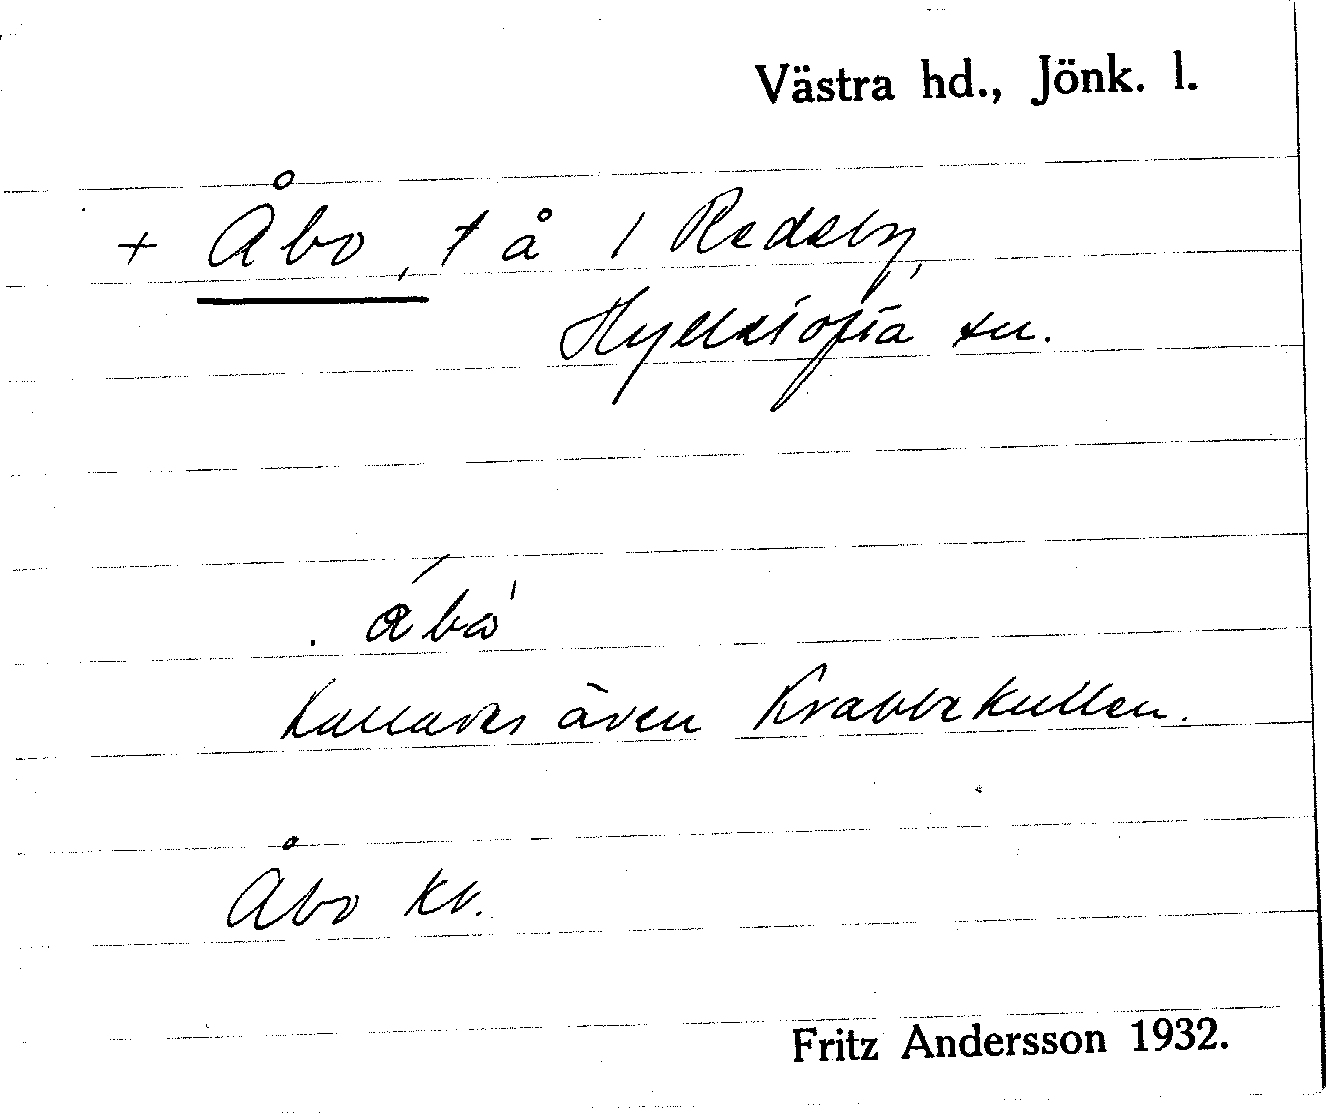 Västra hd., Jönk. l.
+ Åbo, † å 1 Redeby,
Hylletofta sn.
åbo
kallades även Krabbekullen.
Åbo kb.
Fritz Andersson 1932.